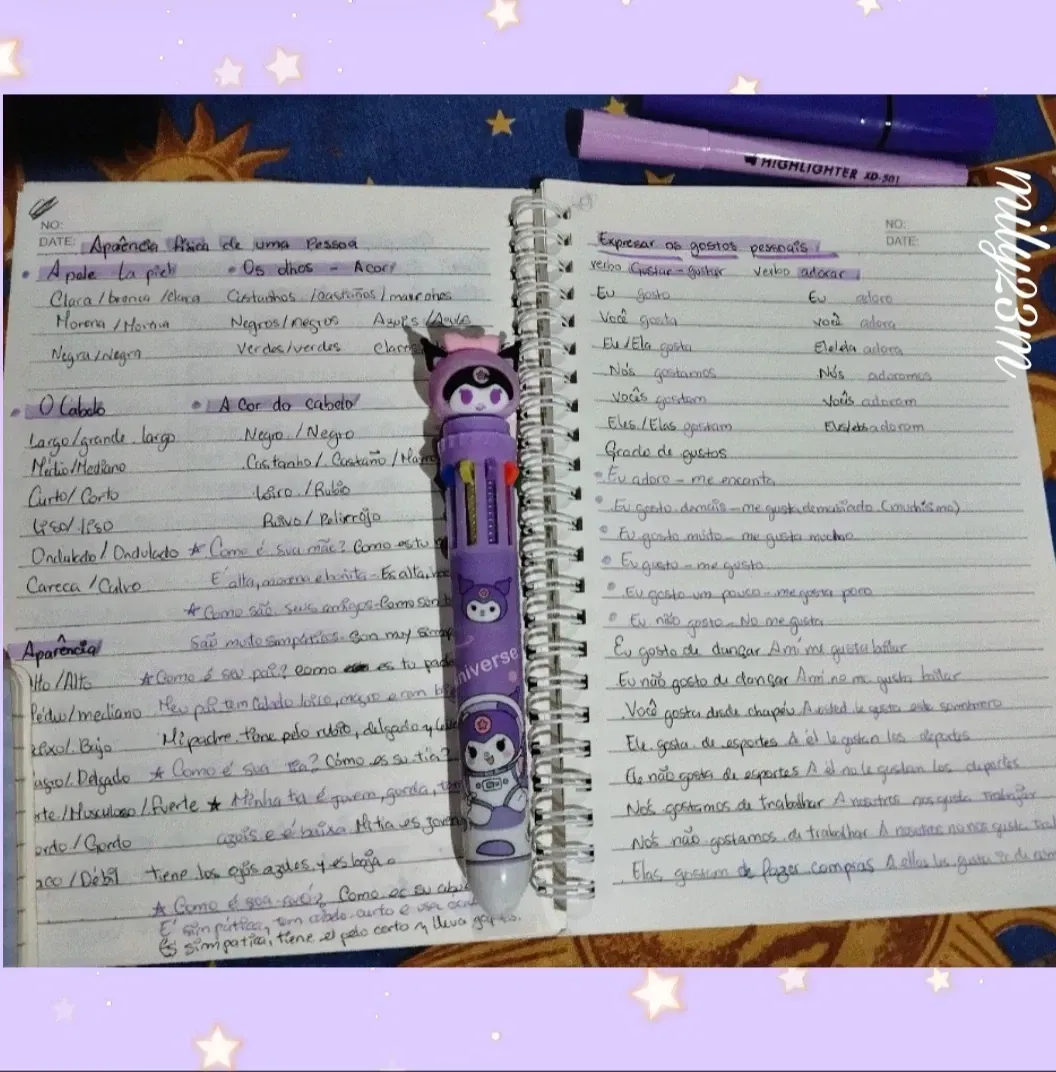 NO:
DATE: Aparência física de uma Pessoa
• A pele La piel • Os olhos - A cor
Clara / branca / clara Castanhos / castaños / marrones
Morena / Morena Negros / negros Azuis / Azules
Negra / Negra Verdes / verdes Claros
• O Cabelo • A Cor do cabelo
Largo / grande largo Negro / Negro
Médio / Mediano Castanho / Castaño /
Curto / Corto Loiro / Rubio
Liso / liso Ruivo / Pelirrojo
Ondulado / Ondulado ★ Como é sua mãe? Como es tu
Careca / Calvo É alta, morena e bonita - Es alta,
★ Como são seus amigos - Como son
Aparência São muito simpáticos - Son muy
Alto / Alto ★ Como é seu pai? Como es tu
mediano Meu pai tem Cabelo loiro, magro e com
Bajo Mi padre tiene pelo rubio, delgado y
Delgado ★ Como é sua tia? Cómo es su tía?
Musculoso / fuerte ★ Minha tia é jovem, gorda,
Gordo azuis e é baixa Mi tia es joven
Débil tiene los ojos azules y es baja
★ Como é sua avó? Como es su
É simpática, tem cabelo curto e usa
Es simpatica, tiene el pelo corto y lleva
NO:
DATE:
Expresar os gostos pessoais
verbo Gustar - gustar verbo adorar
Eu gosto Eu adoro
Você gosta você adora
Ele / Ela gosta Ele/ela adora
Nós gostamos Nós adoramos
Vocês gostam Vocês adoram
Eles / Elas gostam Eles/elas adoram
Grado de gustos
• Eu adoro - me encanta
• Eu gosto demais - me gusta demasiado (muchísimo)
• Eu gosto muito - me gusta mucho
• Eu gosto - me gusta
• Eu gosto um pouco - me gusta poco
• Eu não gosto - No me gusta
Eu gosto de dançar A mi me gusta bailar
Eu não gosto de dançar A mi no me gusta bailar
Você gosta deste chapéu A usted le gusta este sombrero
Ele gosta de esportes A él le gustan los deportes
Ele não gosta de esportes A él no le gustan los deportes
Nós gostamos de trabalhar A nosotros nos gusta trabajar
Nós não gostamos de trabalhar A nosotros no nos gusta
Elas gostam de fazer compras A ellas les gusta ir de
HIGHLIGHTER XD-501
niverse
mily23m